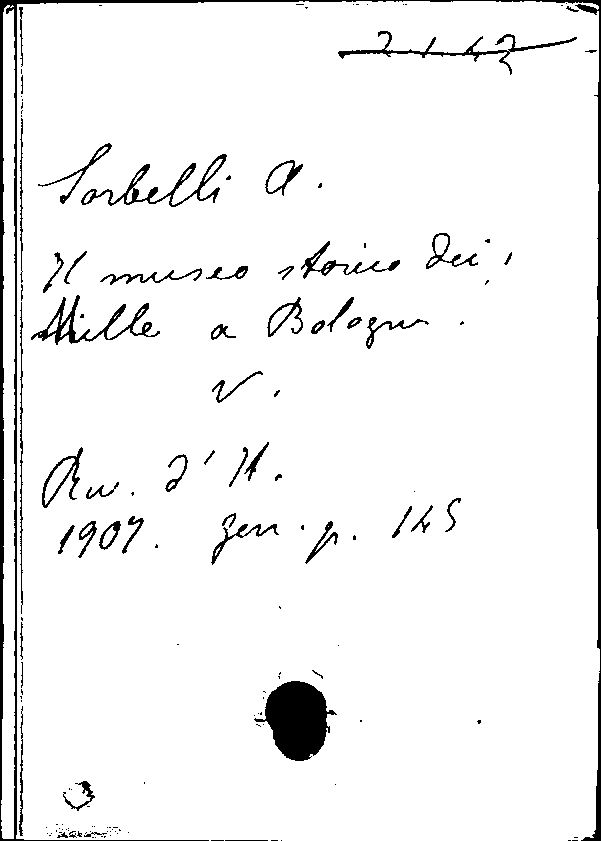 2.1.42
Sorbelli A.
Il museo storico dei
Mille a Bologna.
V.
Riv. d' It.
1907. gen. p. 145